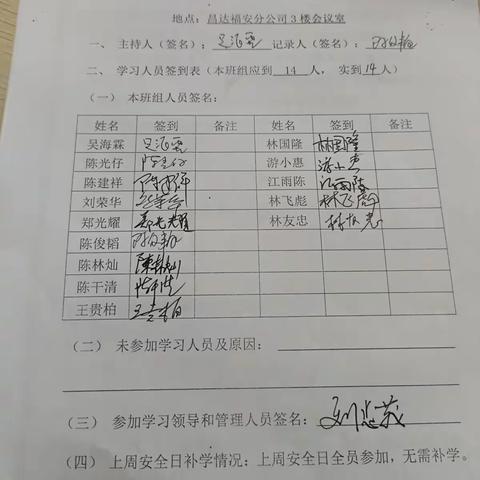 地点：昌达福安分公司3楼会议室
一、 主持人（签名）：吴海霖 记录人（签名）：陈俊韬
二、 学习人员签到表（本班组应到 14 人， 实到 14 人）
（一） 本班组人员签名：
姓名 签到 备注 姓名 签到 备注
吴海霖 吴海霖 林国隆 林国隆
陈光仔 陈光仔 游小惠 游小惠
陈建祥 陈建祥 江雨陈 江雨陈
刘荣华 刘荣华 林飞彪 林飞彪
郑光耀 郑光耀 林友忠 林友忠
陈俊韬 陈俊韬
陈林灿 陈林灿
陈干清 陈干清
王贵柏 王贵柏
（二） 未参加学习人员及原因：
（三） 参加学习领导和管理人员签名：
（四） 上周安全日补学情况：上周安全日全员参加，无需补学。